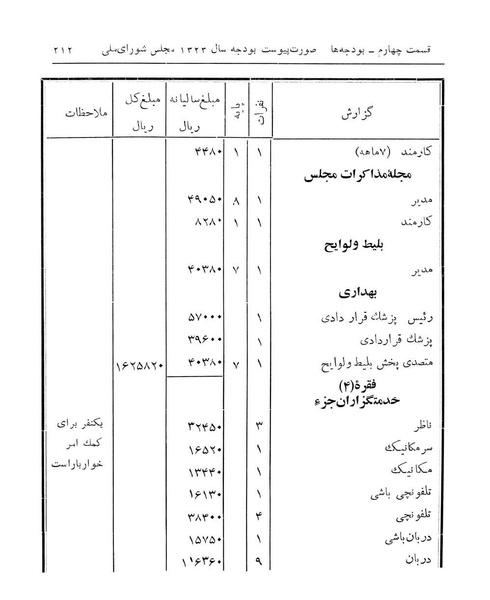 قسمت چهارم ـ بودجه‌ها صورت‌پیوست بودجه سال ۱۳۲۳ مجلس شورای‌ملی ۲۱۲
گزارش نفرات پایه مبلغ سالیانه ریال مبلغ کل ریال ملاحظات
کارمند (۷ماهه) ۱ ۱ ۴۴۸۰
مجلهٔ مذاکرات مجلس
مدیر ۱ ۸ ۴۹۰۵۰
کارمند ۱ ۱ ۸۲۸۰
بلیط و لوایح
مدیر ۱ ۷ ۴۰۳۸۰
بهداری
رئیس پزشك قرار دادی ۱ ۵۷۰۰۰
پزشك قراردادی ۱ ۳۹۶۰۰
متصدی پخش بلیط و لوایح ۱ ۷ ۴۰۳۸۰ ۱۶۲۵۸۲۰
فقرهٔ (۴)
خدمتگزاران جزء
ناظر ۳ ۳۲۴۵۰ یکنفر برای
سر مکانیك ۱ ۱۶۵۲۰ کمك امر
مکانیك ۱ ۱۳۴۴۰ خواربار است
تلفونچی باشی ۱ ۱۶۱۳۰
تلفونچی ۴ ۳۸۴۰۰
دربان باشی ۱ ۱۵۷۵۰
دربان ۹ ۱۱۶۳۶۰